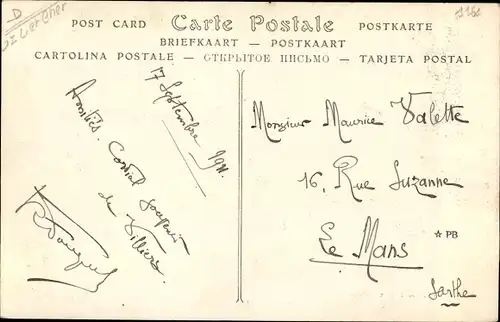 D
Loir et Cher
POST CARD Carte Postale POSTKARTE
BRIEFKAART — POSTKAART
CARTOLINA POSTALE — ОТКРЫТОЕ ПИСЬМО — TARJETA POSTAL
7 Septembre 1911.
Amitiés. Cordial souvenir
de Villiers.
Monsieur Maurice Valette
16, Rue Suzanne
Le Mans
☆ PB
Sarthe